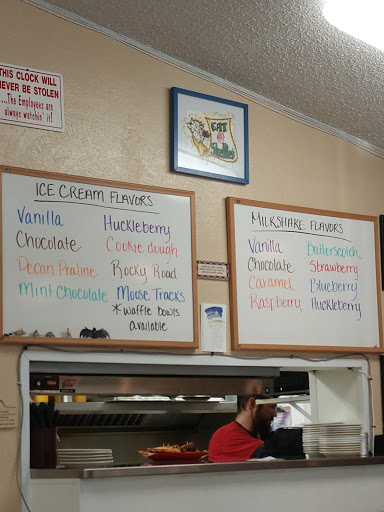 THIS CLOCK WILL
NEVER BE STOLEN
...The Employees are
always watchin' it!
EAT
@
ICE CREAM FLAVORS
Vanilla
Chocolate
Pecan Praline
Mint Chocolate
Huckleberry
Cookie dough
Rocky Road
Moose Tracks
*waffle bowls
available
MILKSHAKE FLAVORS
Vanilla
Chocolate
Caramel
Raspberry
Butterscotch
Strawberry
Blueberry
Huckleberry